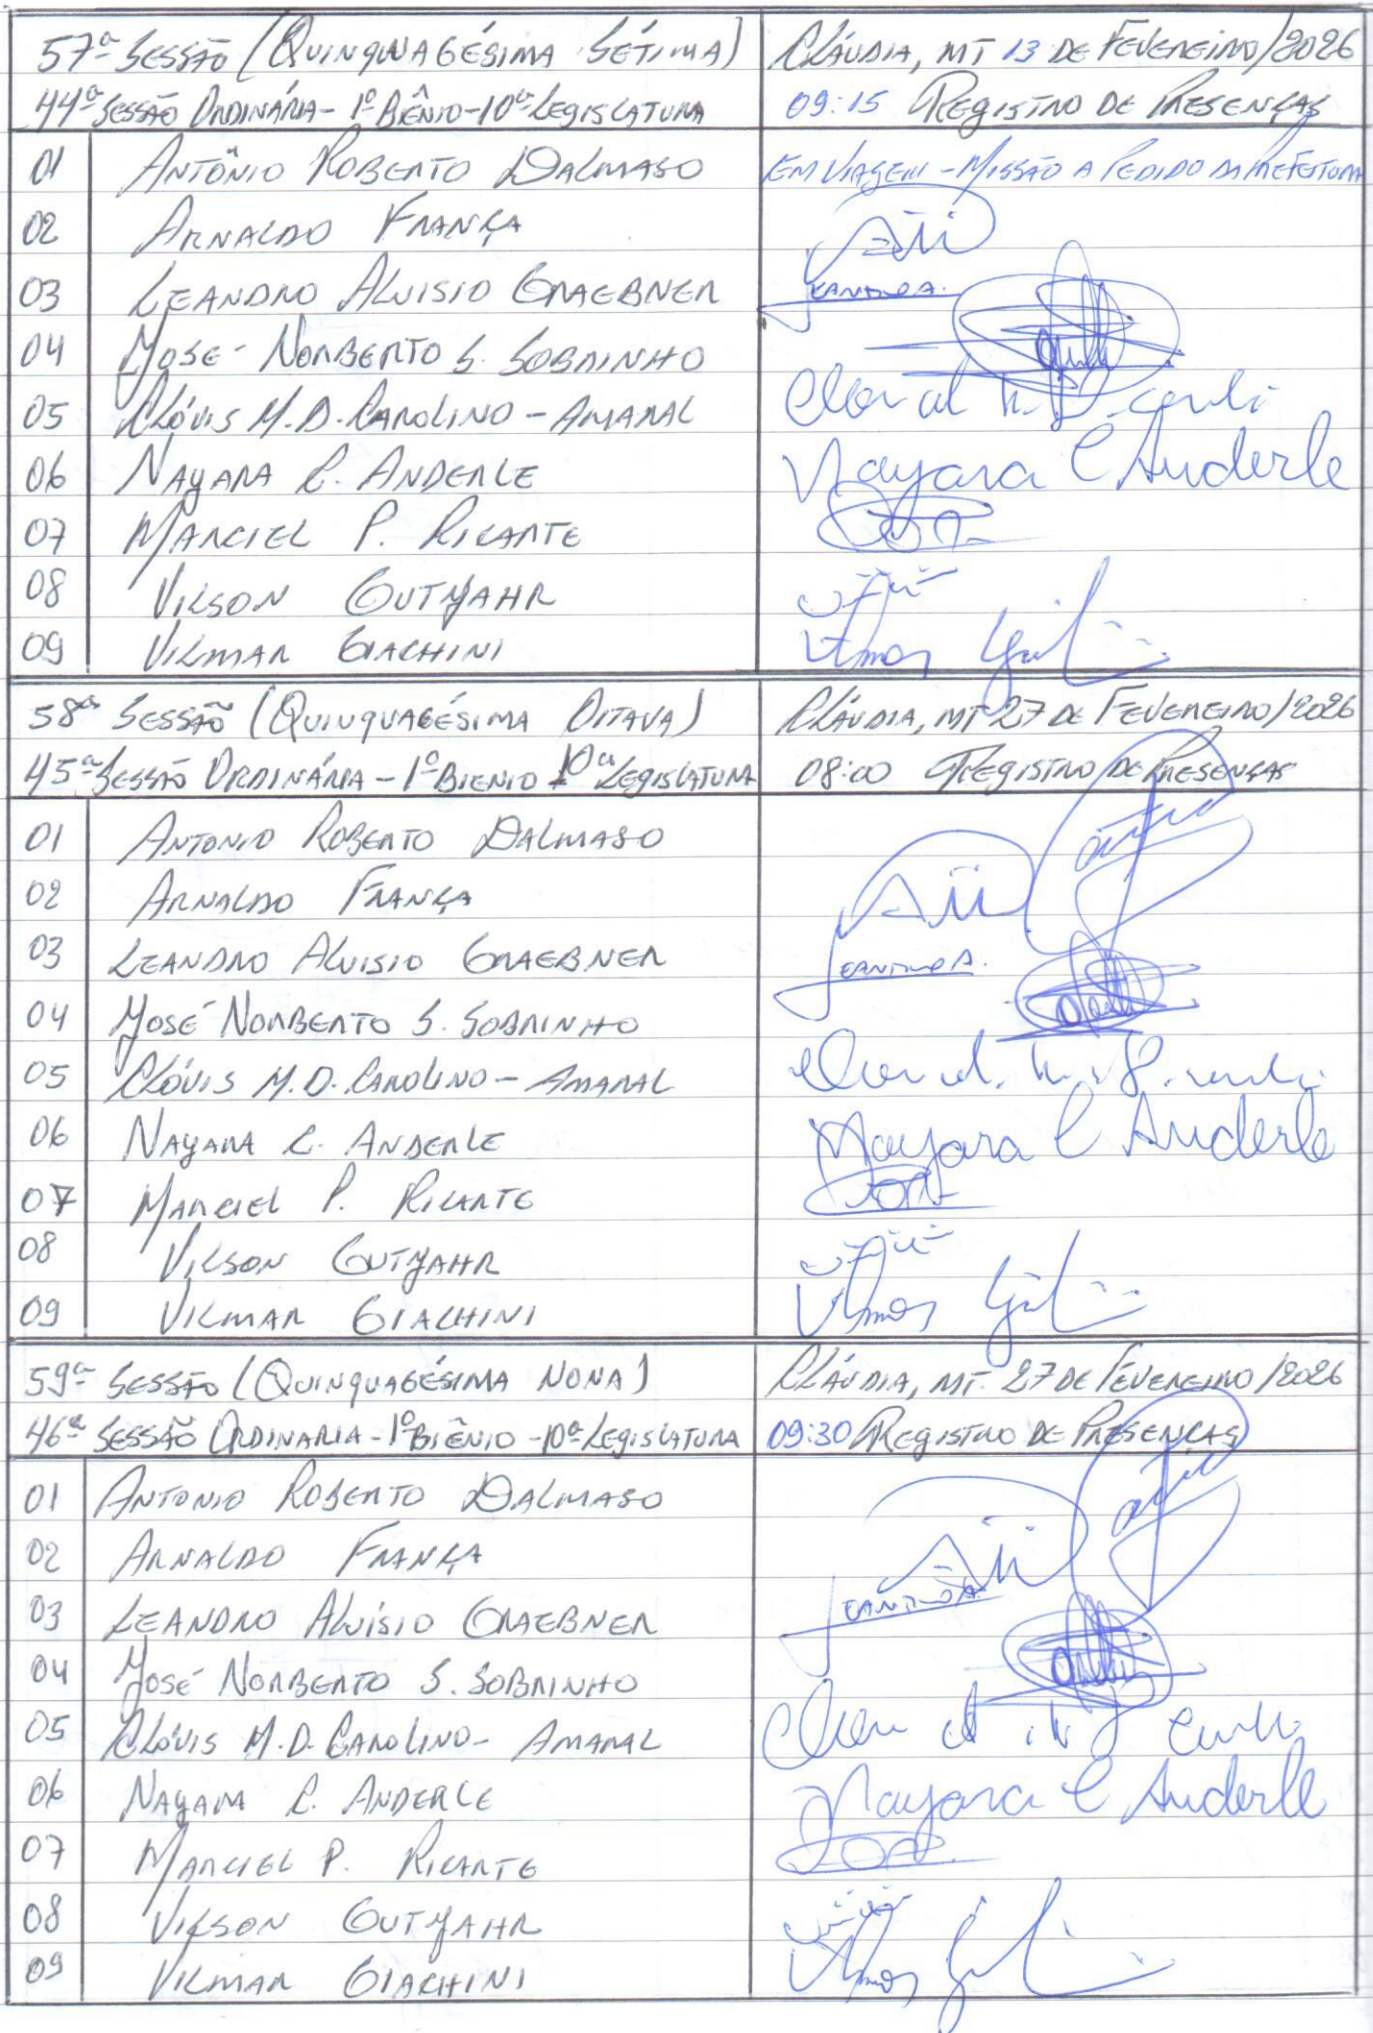 57ª Sessão (Quinquagésima Sétima) Cláudia, MT 13 de Fevereiro/2026
44ª Sessão Ordinária - 1º Biênio - 10ª Legislatura 09:15 Registro de Presenças
01 Antônio Roberto Dalmaso Em Viagem - Missão a Pedido da Prefeitura
02 Arnaldo França
03 Leandro Aluisio Graebner
04 José Norberto S. Sobrinho
05 Clóvis M.D. Carolino - Amaral
06 Nayara C. Anderle Nayara C Anderle
07 Marciel P. Ricarte
08 Vilson Gutjahr
09 Vilmar Giachini
58ª Sessão (Quinquagésima Oitava) Cláudia, MT 27 de Fevereiro/2026
45ª Sessão Ordinária - 1º Biênio 10ª Legislatura 08:00 Registro de Presenças
01 Antonio Roberto Dalmaso
02 Arnaldo França
03 Leandro Aluisio Graebner
04 José Norberto S. Sobrinho
05 Clóvis M.D. Carolino - Amaral
06 Nayara C. Anderle Nayara C Anderle
07 Marciel P. Ricarte
08 Vilson Gutjahr
09 Vilmar Giachini
59ª Sessão (Quinquagésima Nona) Cláudia, MT. 27 de Fevereiro/2026
46ª Sessão Ordinaria - 1º Biênio - 10ª Legislatura 09:30 Registro de Presenças
01 Antonio Roberto Dalmaso
02 Arnaldo França
03 Leandro Aluísio Graebner
04 José Norberto S. Sobrinho
05 Clóvis M.D. Carolino - Amaral
06 Nayara C. Anderle Nayara C Anderle
07 Marciel P. Ricarte
08 Vilson Gutjahr
09 Vilmar Giachini